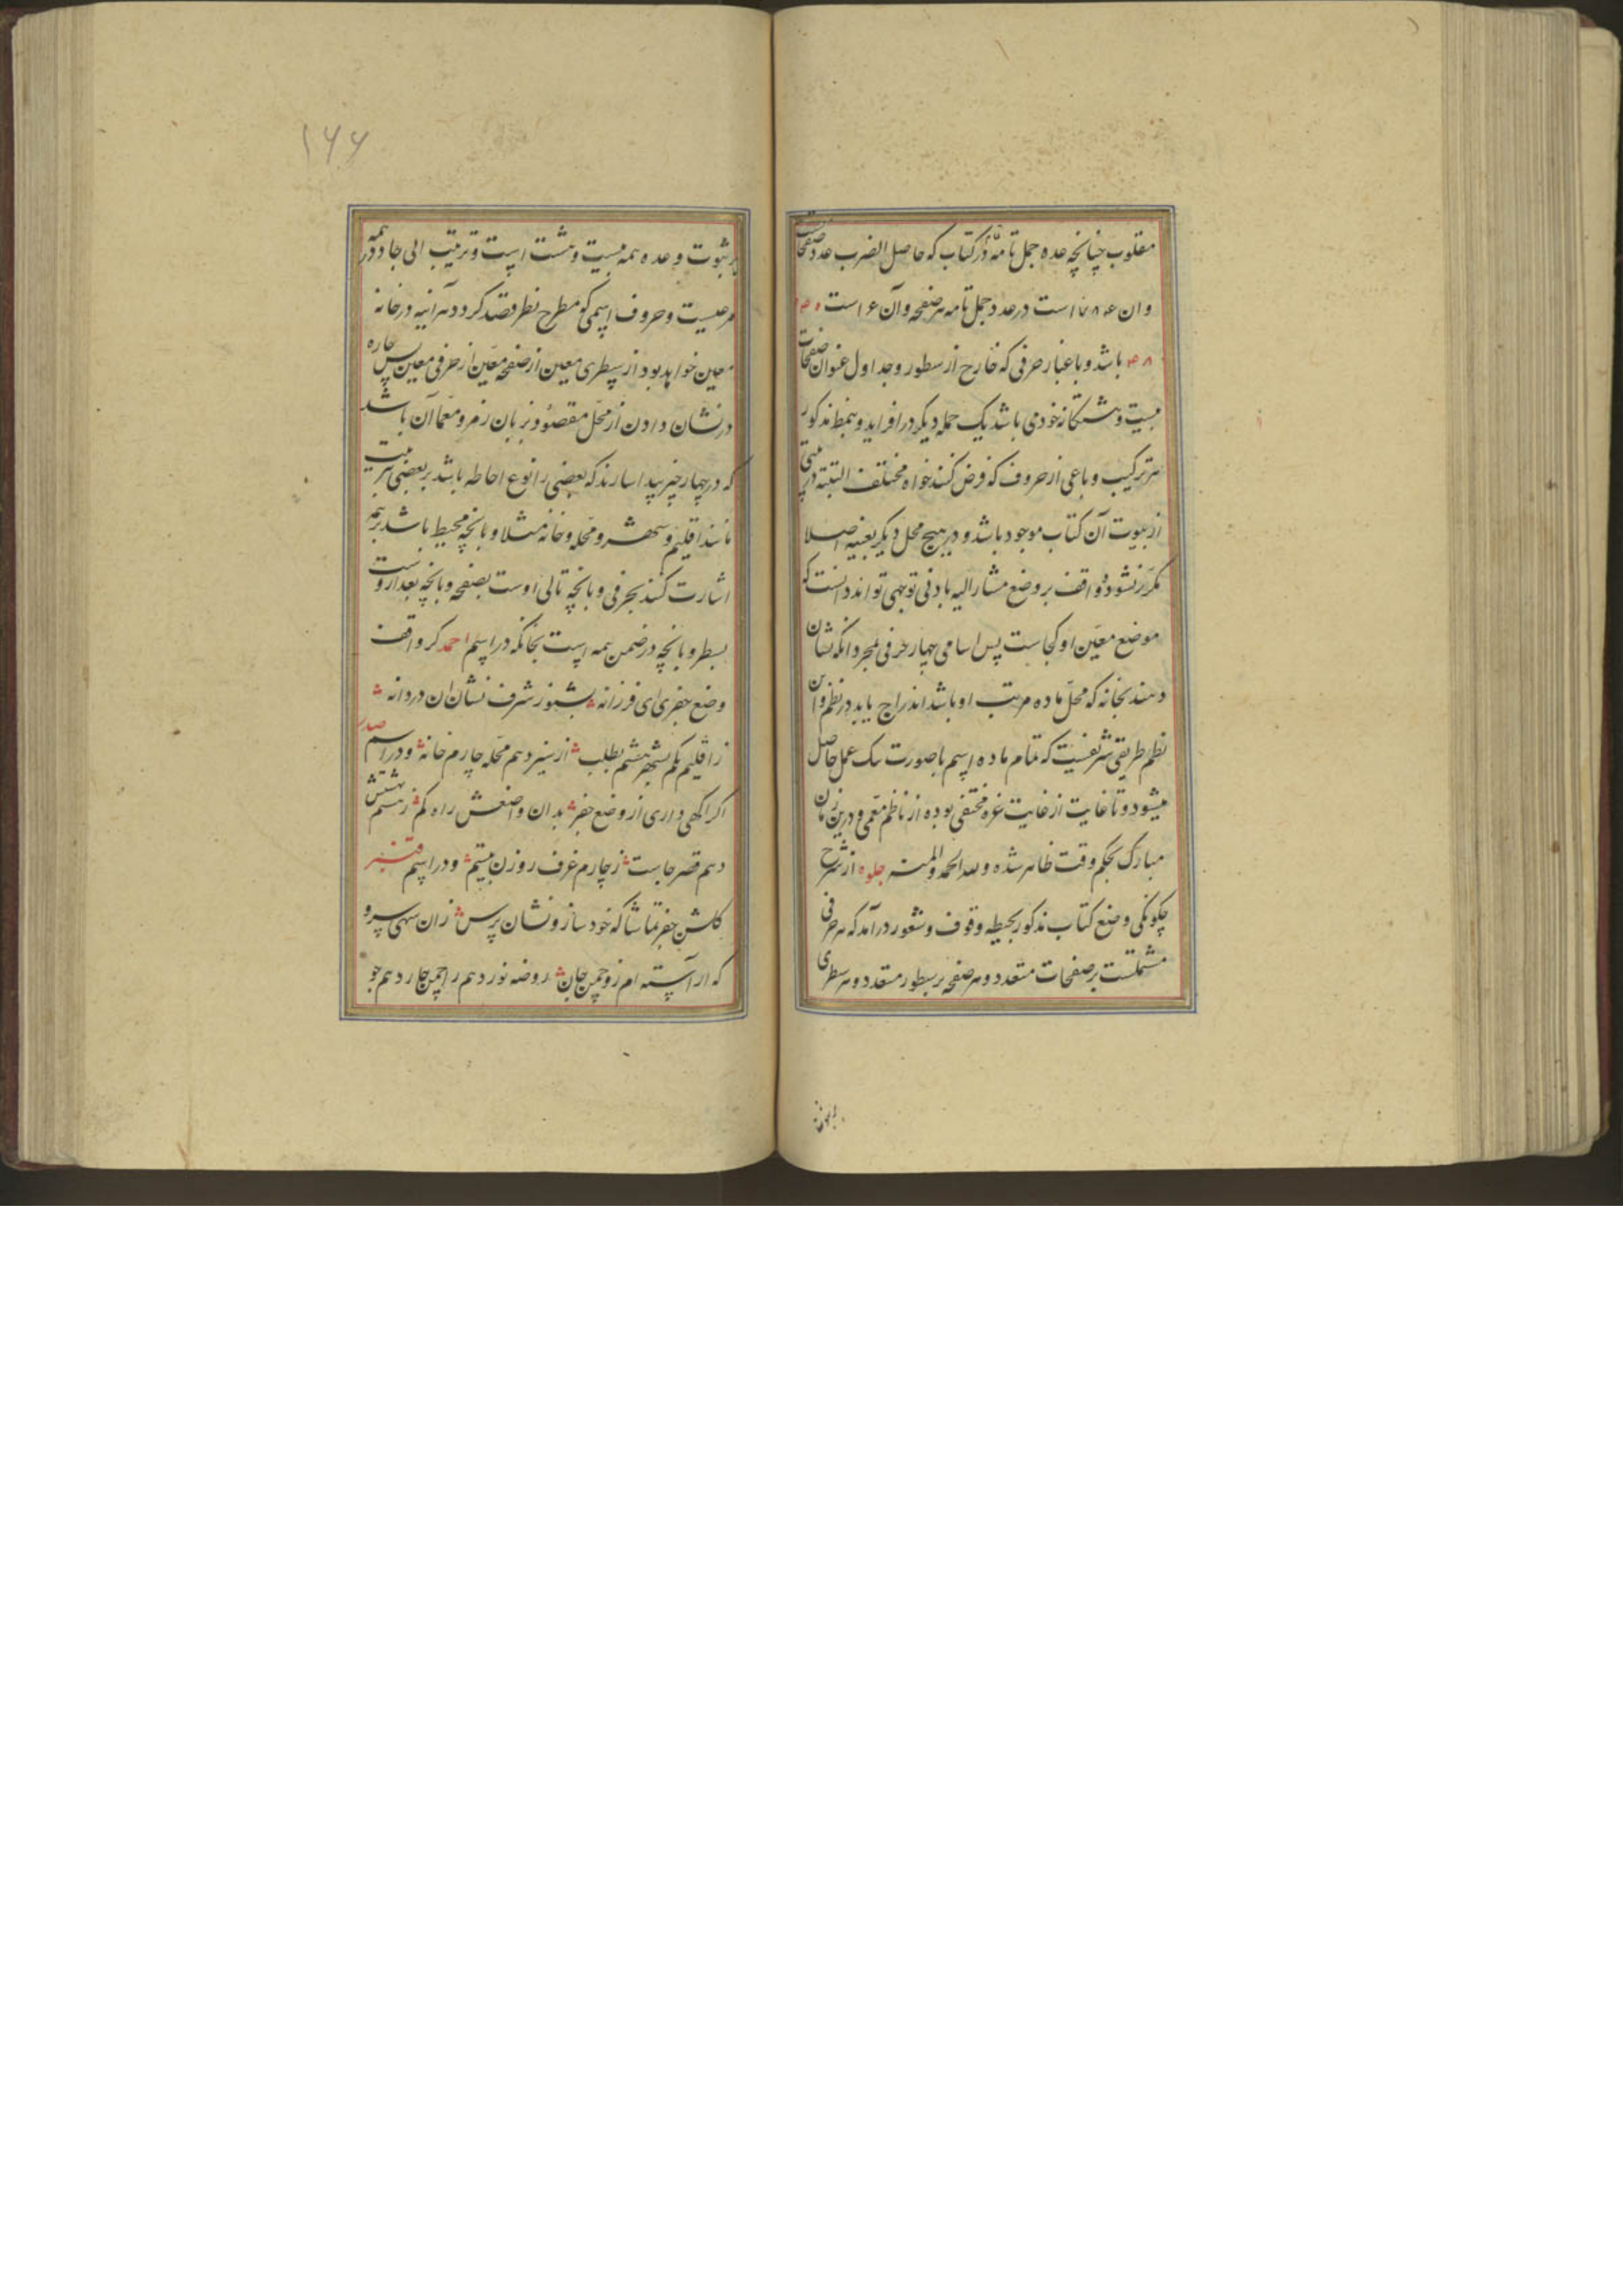 مقلوب چنانچه عده جمل تامهٔ در کتاب که حاصل الضرب عدد صفحات
وان ۷۸۴ است در عدد جمل تامه هر صفحه وآن ۱۶ است
باشد و باعتبار حرفی که خارج از سطور و جداول عنوان صفحات
بیست و هشتکانه خود می باشد یک جمله دیکر در افزاید و بنمط مذکور
هر ترکیب رباعی از حروف که فرض کنند خواه مختلف البته در بیتی
از بیوت آن کتاب موجود باشد و در هیچ محل دیکر بعینه اصلا
مکرر نشود و واقف بر وضع مشار الیه بادنی توجهی تواند دانست که
موضع معین او کجاست پس اسامی چهار حرفی مجرد آنکه نشان
دهند بخانه که محل ماده مرتب او باشد اندراج یابد در نظم و این
نظم طریقی شریفست که تمام ماده اسم با صورت یک عمل حاصل
میشود و تا غایت از غایت غره مختفی بوده از ناظم معمی و درین زمان
مبارک بحکم وقت ظاهر شده و لله الحمد والمنه جلوه از شرح
چکونکی وضع کتاب مذکور بحیطه وقوف و شعور درآمد که هر حرفی
مشتملست بر صفحات متعدد و هر صفحه بر سطور متعدد و هر سطری
۱۶۶
بر بیوت و عده همه بیست و هشت است و ترتیب ابجد در همه
مرعیست و حروف اسمی کو مطرح نظر قصد کردد هر آینه در خانه
معین خواهد بود از سطری معین از صفحه معین از حرفی معین پس چاره
در نشان دادن از محل مقصود بزبان رمز و معما آن باشد
که در چهار چیز پیدا سازند که بعضی را نوع احاطه باشد بر بعضی بترتیب
مانند اقلیم و شهر و محله و خانه مثلا و بانچه محیط باشد بر همه
اشارت کنند بحرفی و بانچه تالی اوست بصفحه و بانچه بعد از وست
بسطر و بانچه در ضمن همه است بخانه در اسم احمد کر واقف
وضع جفری ای فرزانه بشنو ز شرف نشان ان دردانه
ز اقلیم یکم بشهر هشتم بطلب از سیزدهم محله چارم خانه و در اسم صدر
اکر آکهی داری از وضع جفر بدان واضعش راه کم
دهم قصر جاست ز چارم غرف روزن بیستم و در اسم قنبر
کلشن جفر تماشا که خود ساز و نشان پرس زان سهی سرو
که آراسته ام زو چمن جان روضه نوزدهم را چمن چاردهم جو